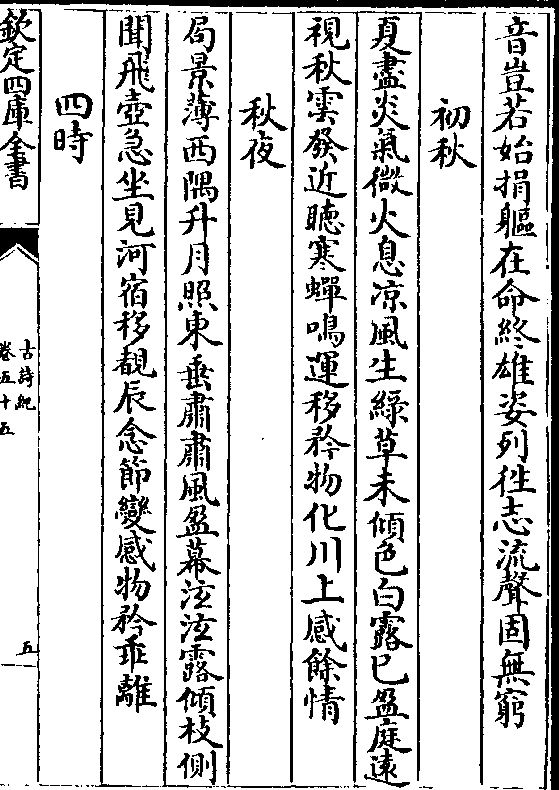 音豈若始捐軀在命終雄姿列徃志流聲固無窮
初秋
夏盡炎氣微火息凉風生綠草未傾色白露已盈庭遠
視秋雲發近聴寒蟬鳴運移矜物化川上感餘情
秋夜
局景薄西隅升月照東垂肅肅風盈幕泫泫露傾枝側
聞飛壺急坐見河宿移覩辰念節變感物矜乖離
四時
欽定四庫全書
古詩紀
卷五十五
五